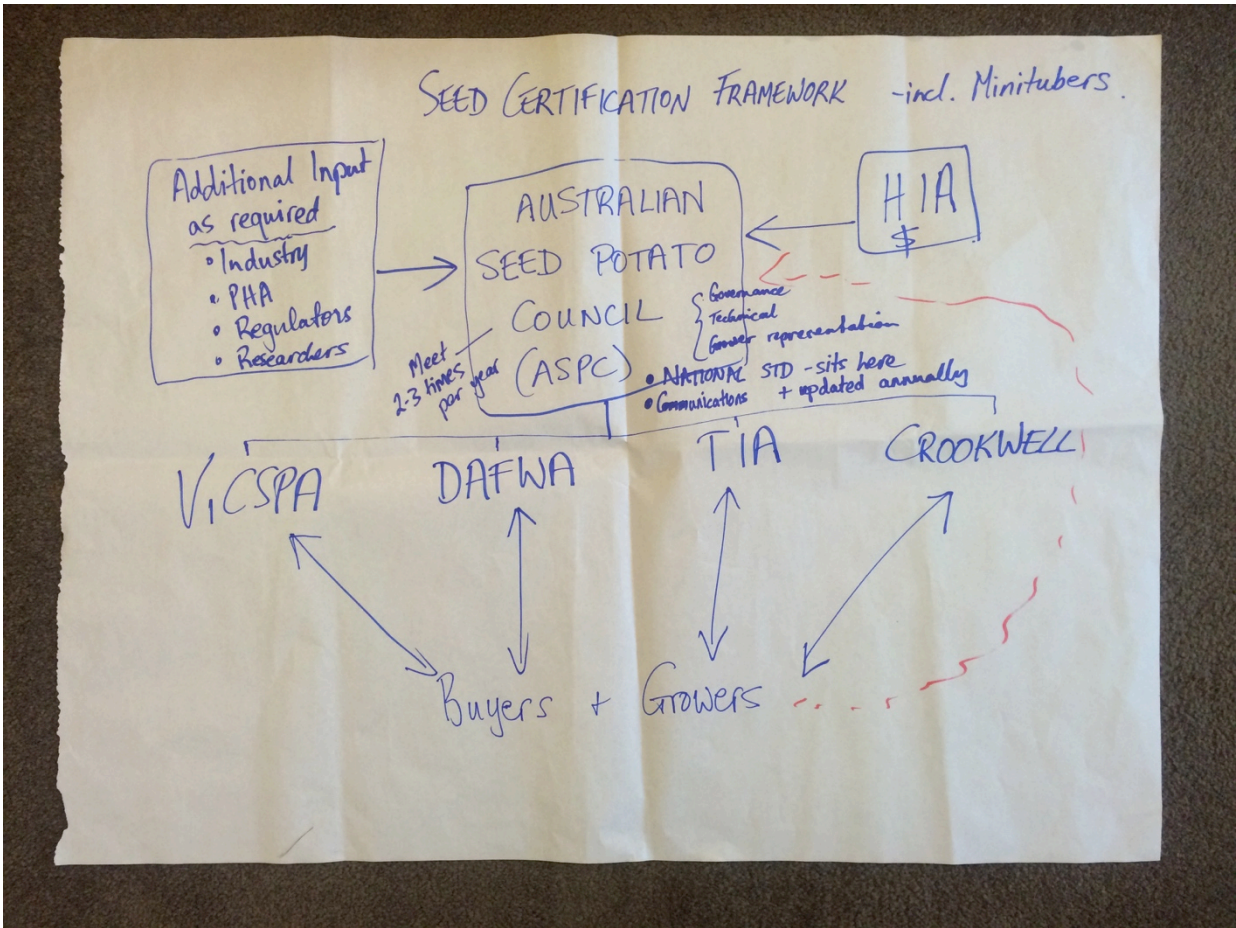 SEED CERTIFICATION FRAMEWORK - incl. Minitubers.
Additional Input
as required
• Industry
• PHA
• Regulators
• Researchers
AUSTRALIAN
SEED POTATO
COUNCIL
(ASPC)
Meet
2-3 times
per year
Governance
Technical
Grower representation
• NATIONAL STD - sits here
+ updated annually
• Communications
HIA
$
VICSPA
DAFWA
TIA
CROOKWELL
Buyers + Growers